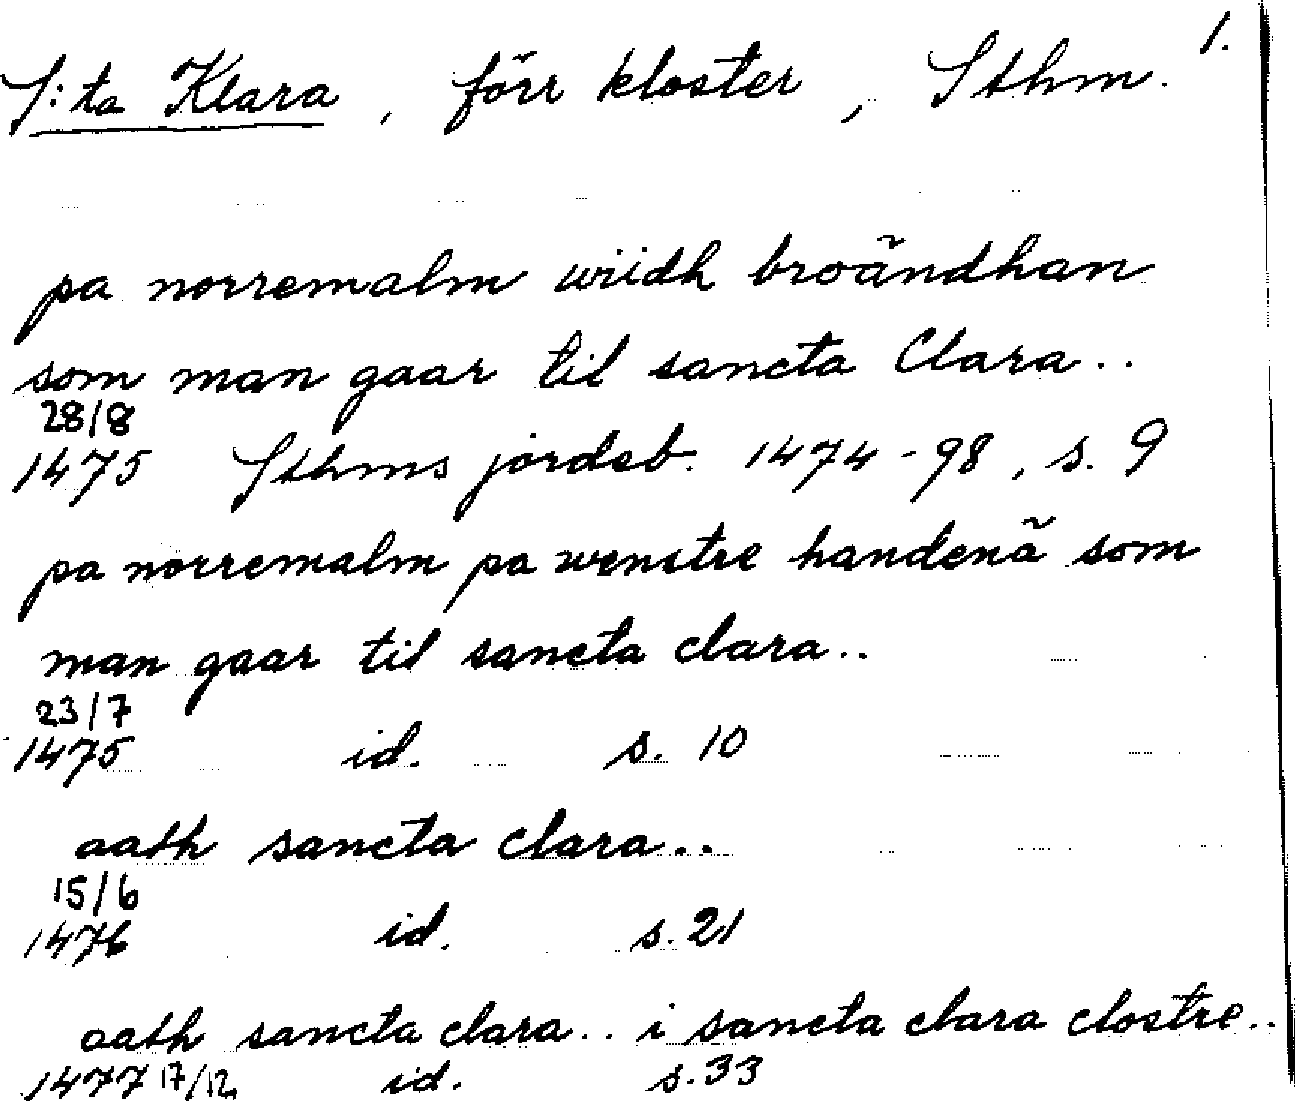 1.
S:ta Klara, förr kloster, Sthm.
pa norremalm wiidh broãndhan
som man gaar til sancta Clara..
28/8
1475 Sthms jordeb. 1474-98, s. 9
pa norremalm pa wenstre handenã som
man gaar til sancta clara..
23/7
1475 id. s. 10
aath sancta clara..
15/6
1476 id. s. 21
aath sancta clara.. i sancta clara clostre..
1477 17/12 id. s. 33